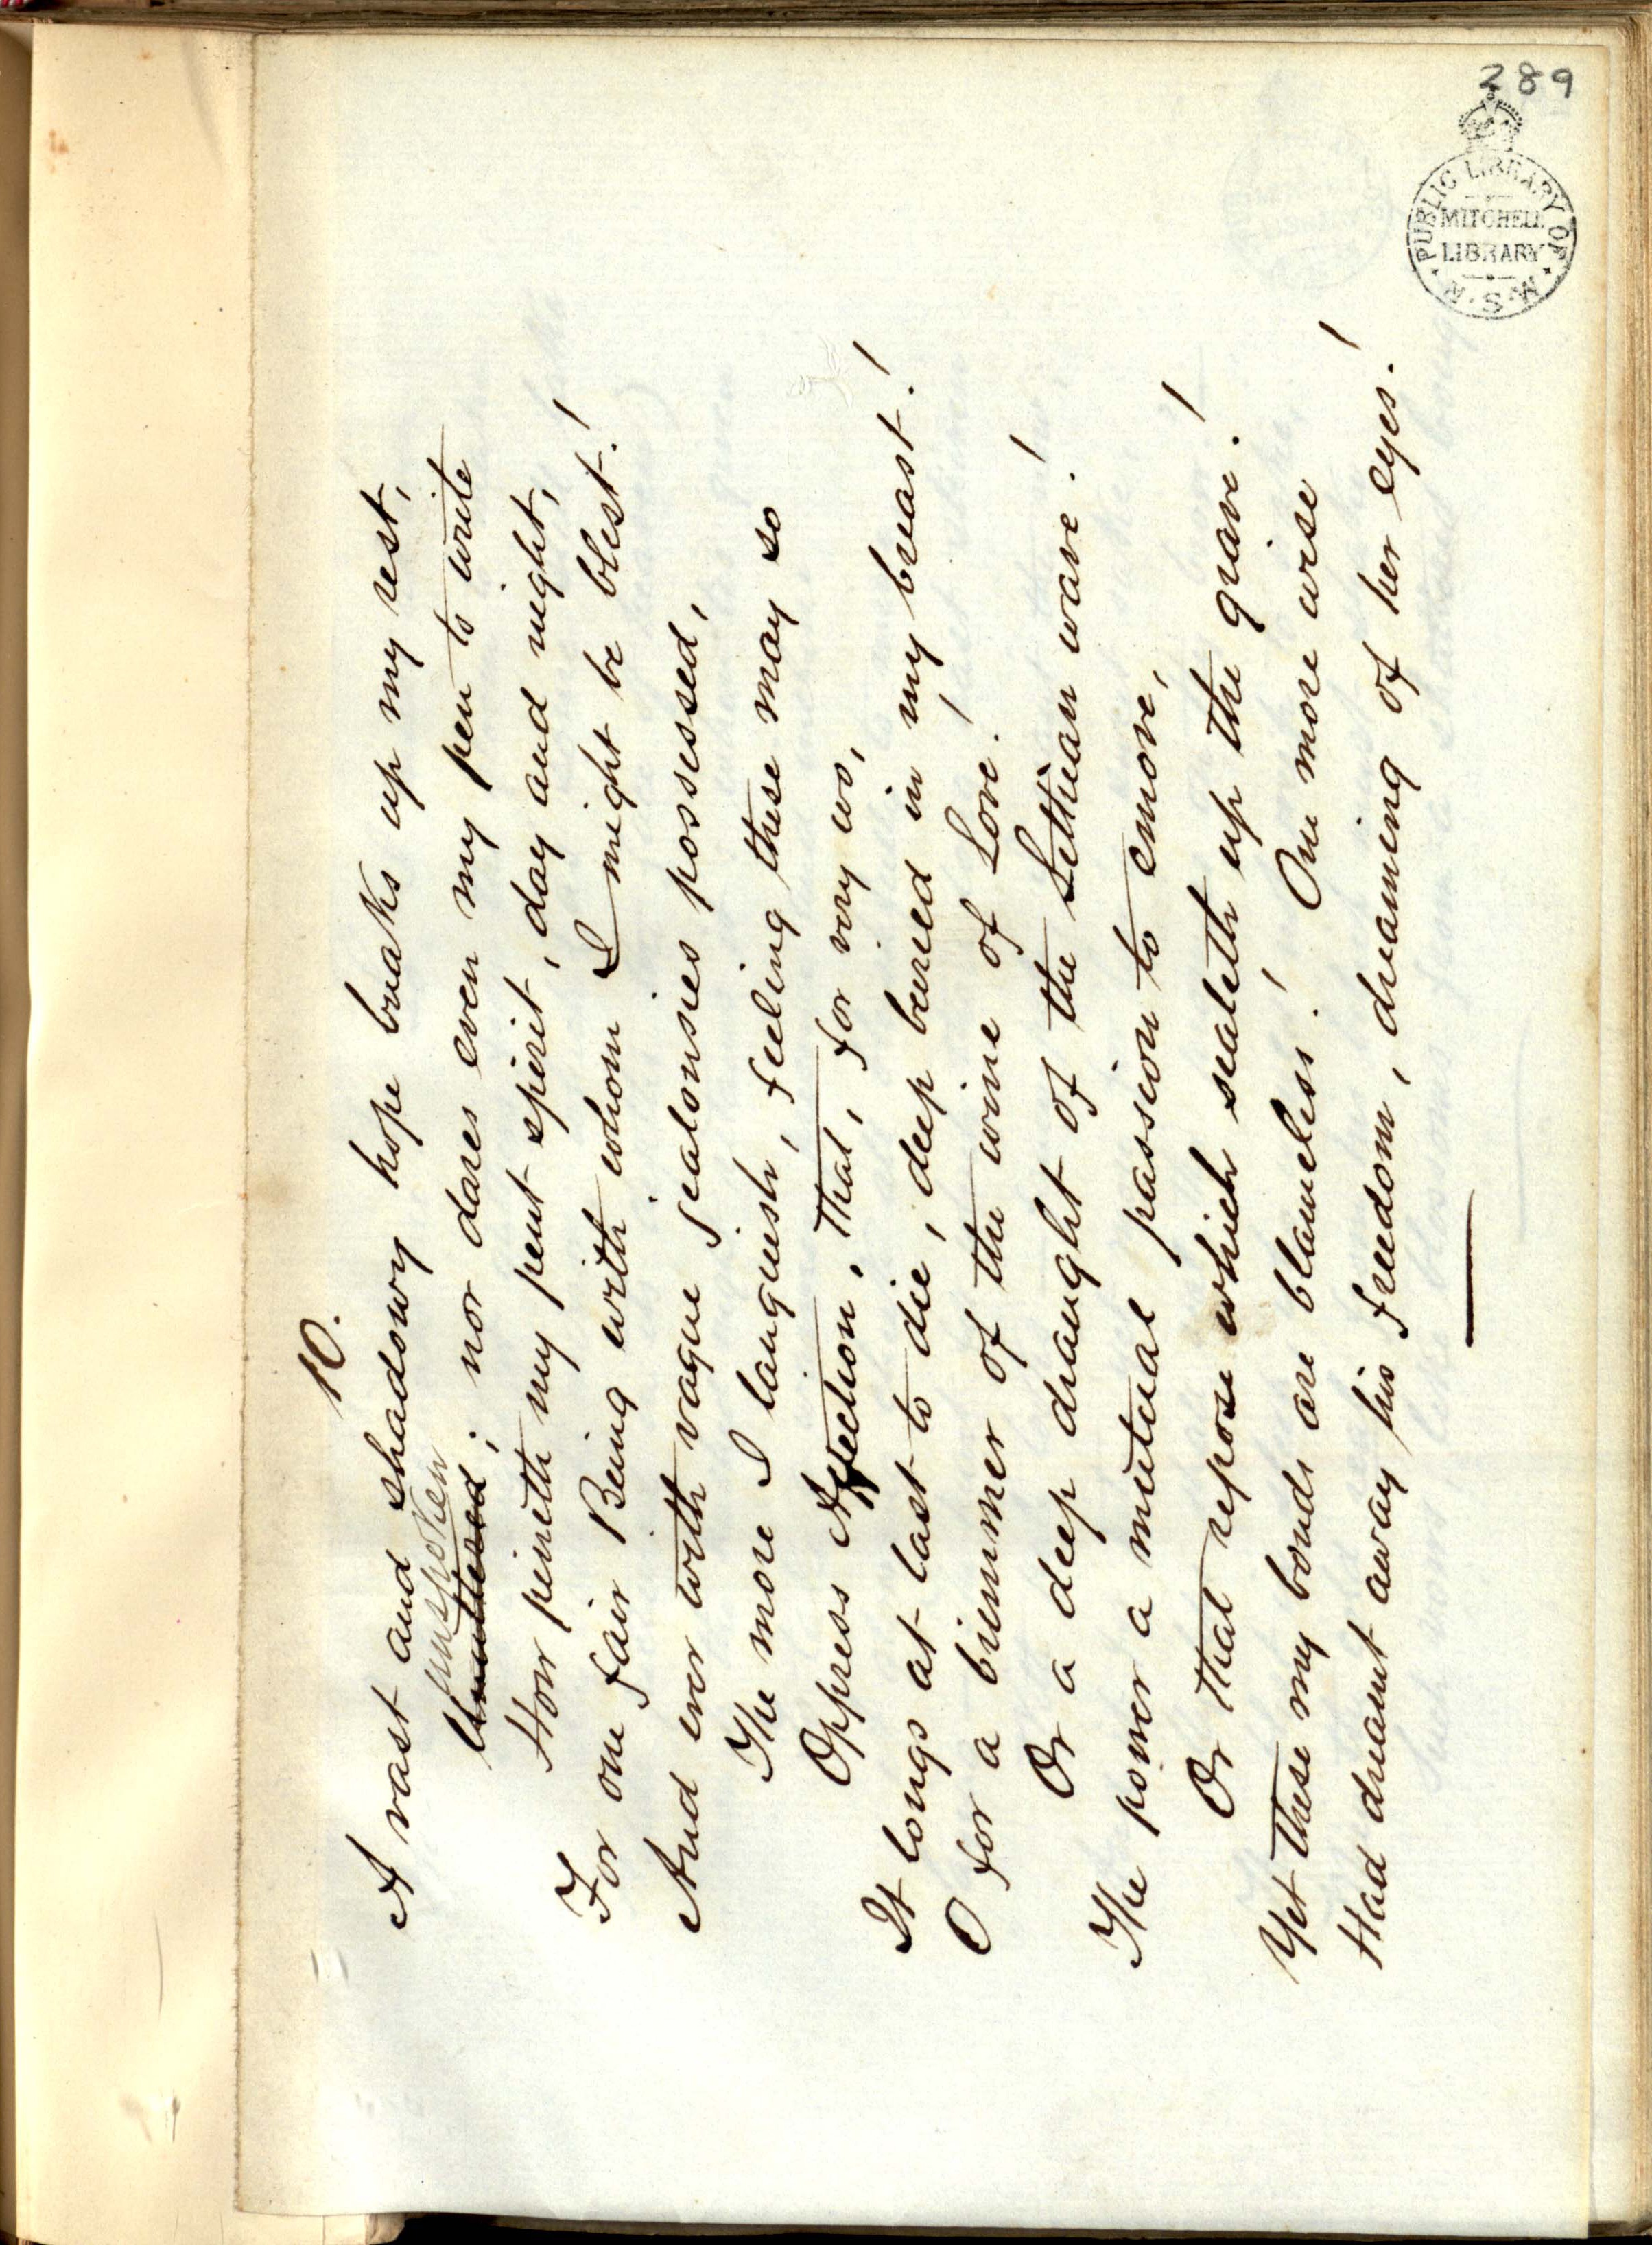 289
PUBLIC LIBRARY OF N.S.W.
MITCHELL
LIBRARY
10.
A vast and shadowy hope breaks up my rest,
unspoken
Unuttered; nor dares even my pen to write
How pineth my pent spirit, day and night,
For one fair Being with whom I might be blest!
And ever with vague jealousies possessed,
The more I languish, feeling these may so
Oppress Affection, that, for very wo,
It longs at last to die, deep buried in my breast!
O for a brimmer of the wine of Love!
Or a deep draught of the Lethean wave!
The power a mutual passion to emove,
Or that repose which sealeth up the grave!
Yet these my bonds are blameless! One more wise
Had dreamt away his freedom, dreaming of her eyes!